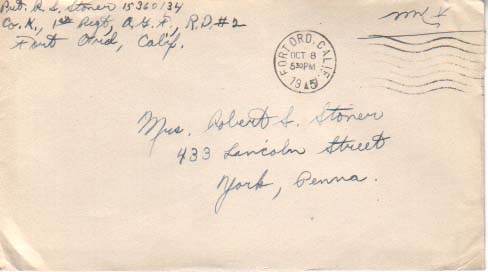 Pvt. R. S. Stoner 15360134
Co. K., 1st Regt, A.G.F., R.D. #2
Fort Ord, Calif.
FORT ORD, CALIF.
OCT 8
5 30 PM
1945
Mrs. Robert S. Stoner
433 Lincoln Street
York, Penna.